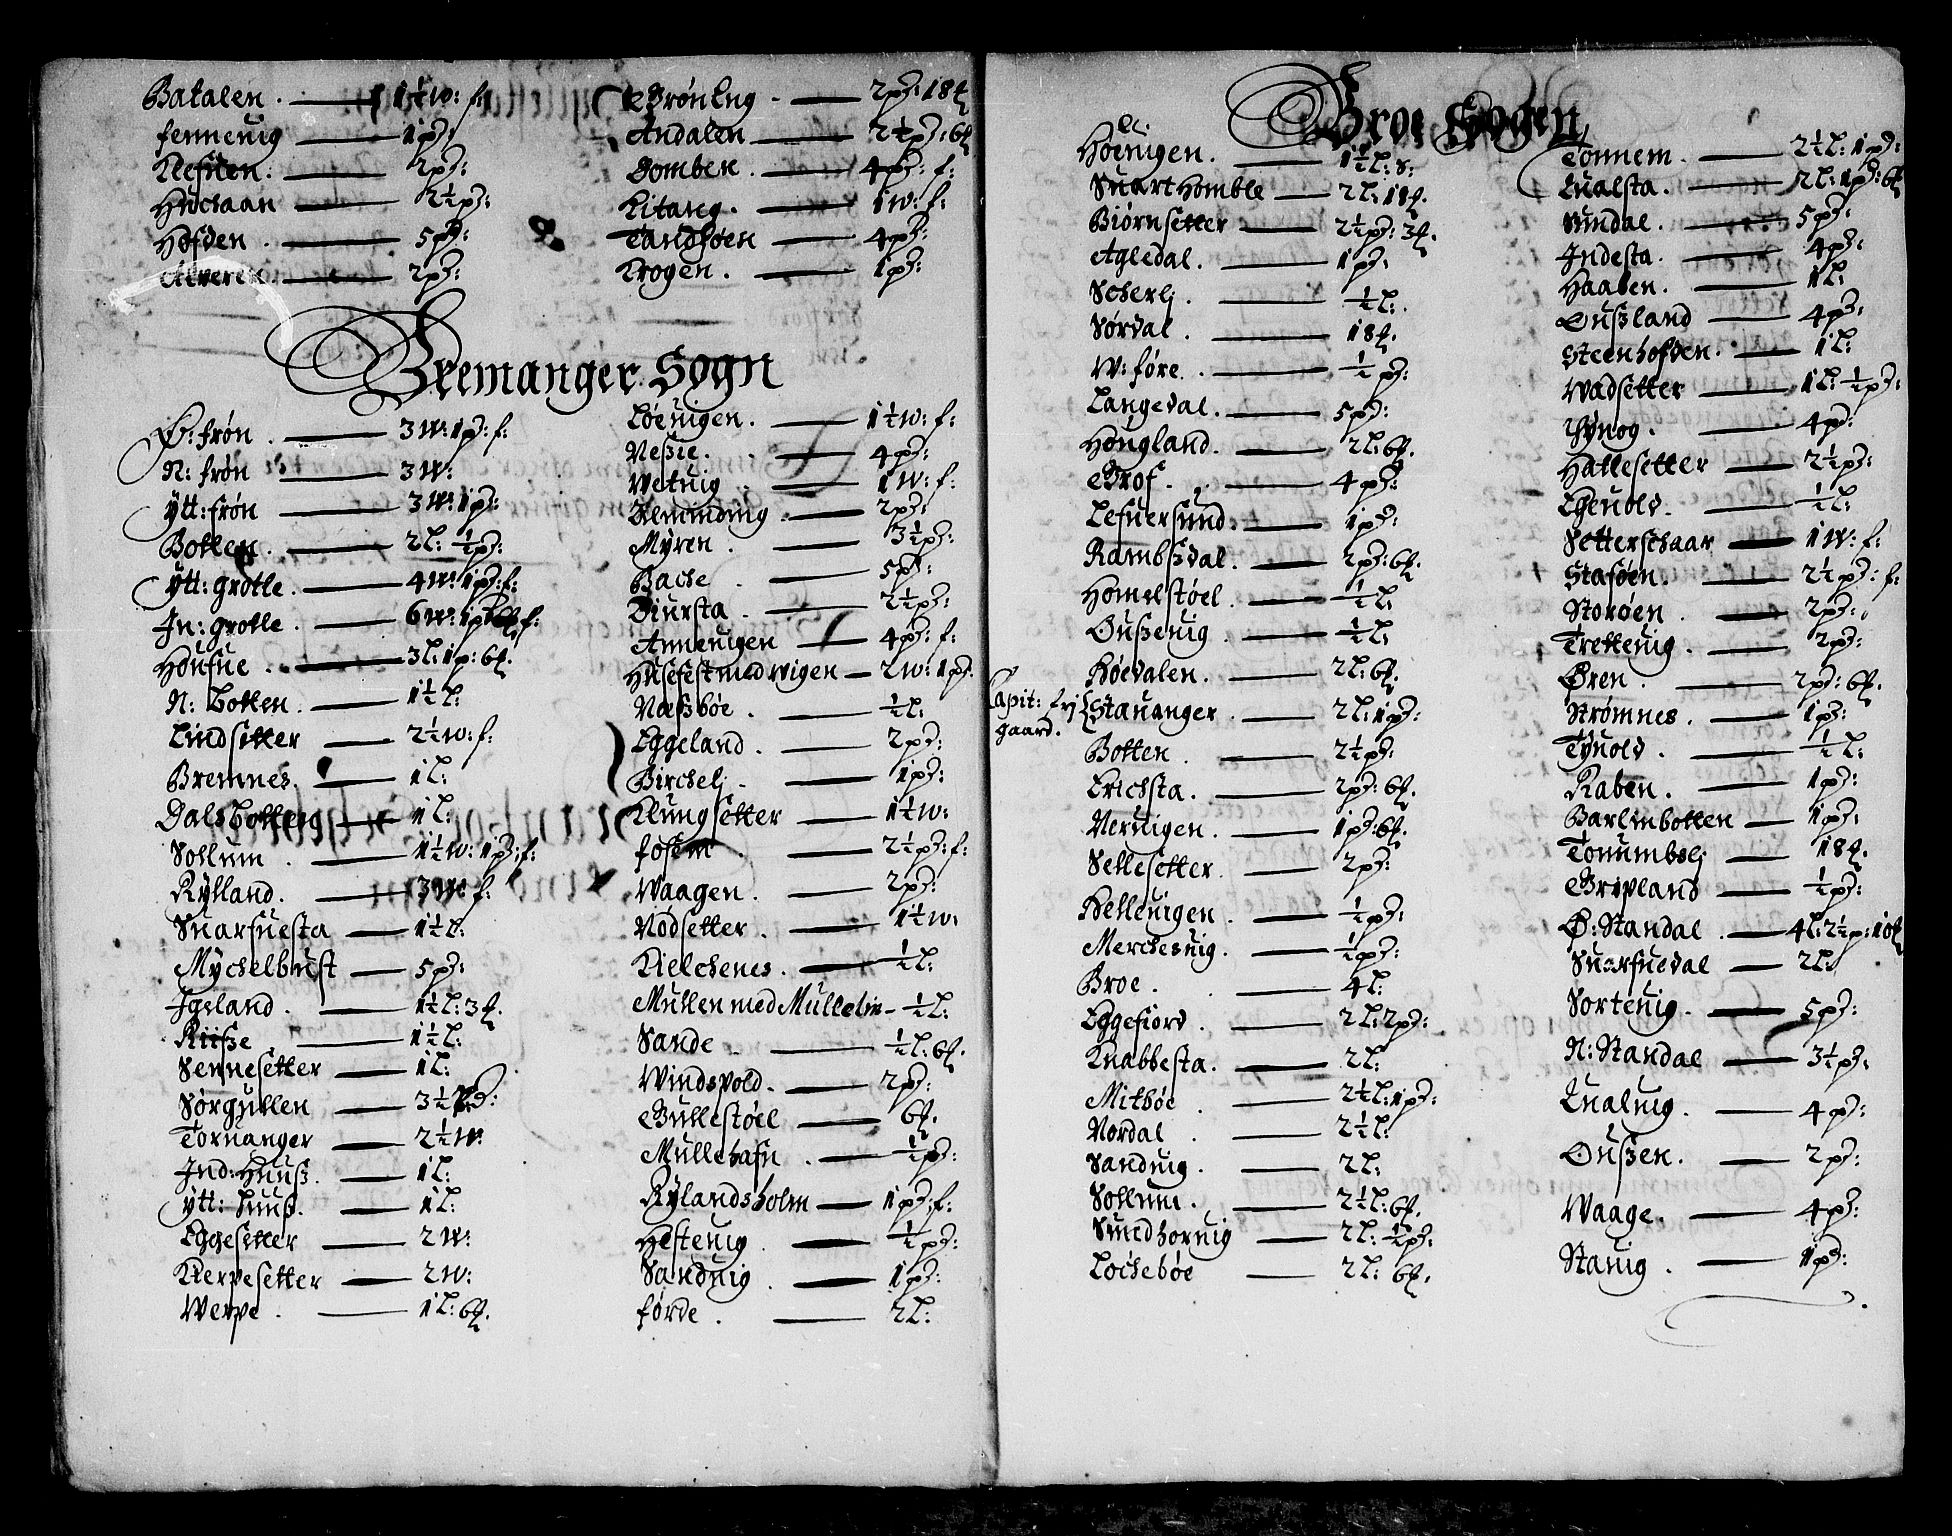 Batalen. — 1½ W: f:
Fennevig — 1 pd:
Klefuen: — 2 pd:
Huchaan — 2½ pd:
Hofden. — 5 pd:
Alveren. — 2 pd:
GrönEng — 2 pd: 18 ℔
Andalen — 2½ pd: 6 ℔
Domben. — 4 pd: f:
Litang. — 1 W: f:
Tandsöen — 4 pd:
Krogen. — 1 pd:
Bremanger Sogn
Ø: frøn. — 3 W: 1 pd: f:
N: frøn — 3 W:
ytt: frøn — 3 W: 1 pd:
Botten. — 2 L: ½ pd:
ytt: grotle. — 4 W: 1 pd: f:
In: grotle. — 6 W: 1 pd f:
Houfue. — 3 L: 1 p: 6 ℔.
N: botten. — 1½ L:
Lindsetter — 2½ W: f:
Bremnes. — 1 L:
Dalsbotten — 1 L:
Sollum. — 1½ W: 1 pd: f:
Rÿlland. — 3 W: f:
Suarfuesta — 1½ L:
Mÿchelbust — 5 pd:
Igeland. — 1½ L: 3 ℔.
Riise — 1½ L:
Sennesetter — 1 L:
Sörgullen — 3½ pd:
Tornanger — 2½ W:
Ind: Huus. — 1 L:
ytt: huus. — 1 L:
Eggesetter — 2 W:
Kervesetter — 2 W:
Werpe. — 1 L: 6 ℔.
Löevigen. — 1½ W: f:
Nesie. — 4 pd:
Wetuig — 1 W: f:
Klemming — 2 pd:
Mÿren. — 3½ pd:
Bache — 5 pd:
Diursta. — 2½ pd:
Annevigen — 4 pd: f:
Husefest med wigen — 2 W: 1 pd.
Næssböe. — ½ L:
Eggeland. — 2 pd:
Birchelj — 1 pd:
Klungsetter — 1½ W:
fosem. — 2½ pd: f:
Waagen. — 2 pd:
Nodsetter. — 1½ W:
Kielchenes. — ½ L:
Mullen med Mullelin — ½ L:
Sande — ½ L: 6 ℔.
Windspold. — 2 pd:
Gullestöel — 6 ℔.
Mullehafn. — ½ pd:
Rÿlandsholm — 1 pd: f:
Hestevig. — ½ pd:
Sanduig. — 1 pd:
förde. — 2 L:
Broe Sogen
Höevigen. — 1½ L: 8:
Suart Homble — 2 L: 18 ℔.
Biörnsetter — 2½ pd: 3 ℔.
Agledal. — 1 pd:
Scherlj. — ½ L:
Sördal. — 18 ℔.
W: före. — ½ pd:
Langedal. — 5 pd:
Hougland. — 2 L: 6 ℔.
Grof. — 4 pd:
Lefuersund. — 1 pd:
Rambsdal. — 2 pd: 6 ℔.
Homelstöel. — ½ L:
Oussevig. — ½ L:
Höedalen. — 2 L: 6 ℔.
Capit: frj gaard.
Stauanger. — 2 L: 1 pd:
Botten. — 2½ pd:
Erichsta. — 2 pd: 6 ℔.
Nervigen. — 1 pd: 6 ℔.
Sellesetter. — 2 pd:
Hellevigen. — ½ pd:
Merchesvig. — ½ pd:
Broe. — 4 L:
Eggefiord. — 2 L: 2 pd:
Knabbesta. — 2 L:
Mitböe — 2½ L: 1 pd:
Nordal. — 2½ L:
Sanduig. — 2 L:
Sollum. — 2½ L: 6 ℔.
Smedhornig — 2 L: ½ pd:
Locheböe — 2 L: 6 ℔.
Tonnem. — 2½ L: 1 pd:
Qualsta. — 2 L: 1 pd: 6 ℔
Sundal. — 5 pd:
Indesta. — 4 pd:
Haaben. — 1 L:
Oussland — 4 pd:
Steenhofden. — 1 L:
Wadsetter — 1 L: ½ pd:
— 4 pd:
Hallesetter — 2½ pd:
Egeuold. — ½ L:
Setterschaar — 1 W: f:
Stasöen. — 2½ pd: f:
Storöen. — 2 pd:
Trettevig. — 2 pd:
Ören. — 2 pd: 6 ℔.
Strömnes. — 1 pd:
Tÿuold. — ½ L:
Raben. — 1 pd:
Barlinbotten — 1 pd:
Tonumbslj — 18 ℔.
Gripland — ½ pd:
Ø: Standal. — 4 L: 2½ p: 10 ℔
Suarfuedal — 2 L:
Sortevig. — 5 pd:
N: Standal — 3½ pd.
Qualuig. — 4 pd:
Oussen. — 2 pd:
Waage. — 4 pd:
Stavig. — 1 pd: